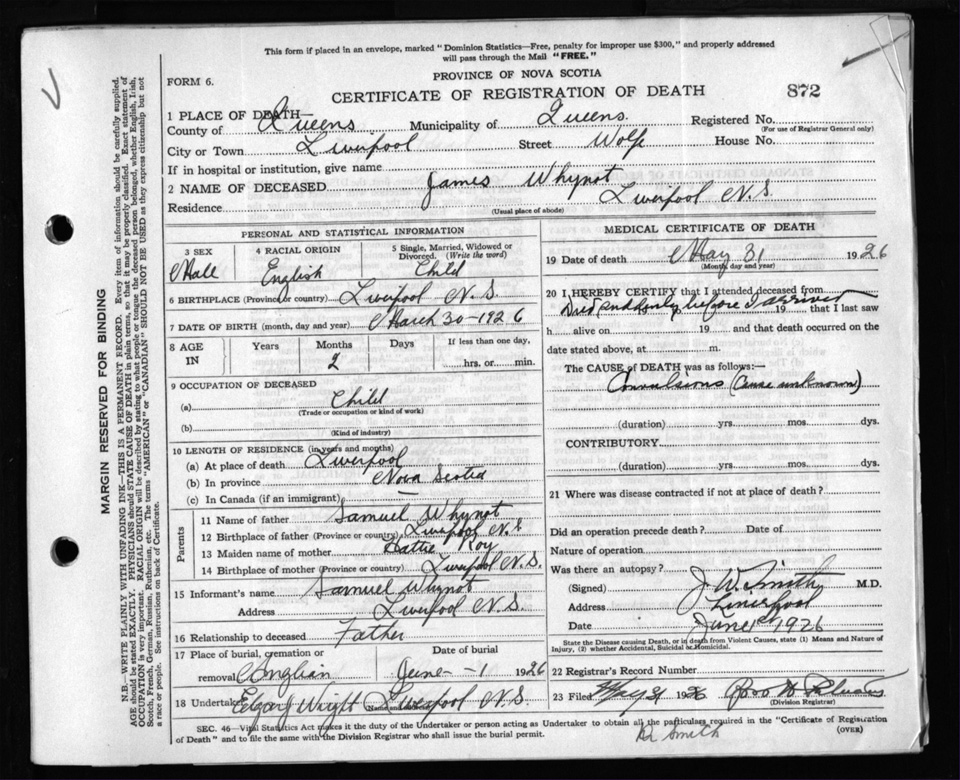 This form if placed in an envelope, marked "Dominion Statistics—Free, penalty for improper use $300," and properly addressed
will pass through the Mail "FREE."
FORM 6.
PROVINCE OF NOVA SCOTIA
CERTIFICATE OF REGISTRATION OF DEATH
872
1 PLACE OF DEATH—
County of Queens Municipality of Queens. Registered No.
(For use of Registrar General only)
City or Town Liverpool Street Wolfe House No.
If in hospital or institution, give name
2 NAME OF DECEASED James Whynot
Residence Liverpool N.S.
(Usual place of abode)
PERSONAL AND STATISTICAL INFORMATION
3 SEX 4 RACIAL ORIGIN 5 Single, Married, Widowed or Divorced. (Write the word)
Male English Child
6 BIRTHPLACE (Province or country) Liverpool N.S.
7 DATE OF BIRTH (month, day and year) March 30-1926
8 AGE IN Years Months Days If less than one day,
2 hrs. or min.
9 OCCUPATION OF DECEASED
(a) Child
(Trade or occupation or kind of work)
(b)
(Kind of industry)
10 LENGTH OF RESIDENCE (in years and months)
(a) At place of death Liverpool
(b) In province Nova Scotia
(c) In Canada (if an immigrant) —
Parents
11 Name of father Samuel Whynot
12 Birthplace of father (Province or country) Liverpool N.S.
13 Maiden name of mother Hattie Roy
14 Birthplace of mother (Province or country) Liverpool N.S.
15 Informant's name Samuel Whynot
Address Liverpool N.S.
16 Relationship to deceased Father
17 Place of burial, cremation or removal Anglian Date of burial June 1 1926
18 Undertaker Edgar Wright Liverpool N.S.
MEDICAL CERTIFICATE OF DEATH
19 Date of death May 31 1926
(Month, day and year)
20 I, HEREBY CERTIFY that I attended deceased from
Died suddenly before I arrived 19 that I last saw
h alive on 19 and that death occurred on
date stated above, at m.
The CAUSE of DEATH was as follows:—
Convulsions (Cause unknown)
(duration) yrs. mos. dys.
CONTRIBUTORY
(duration) yrs. mos. dys.
21 Where was disease contracted if not at place of death?
Did an operation precede death? Date of
Nature of operation
Was there an autopsy?
(Signed) J. W. Smith M.D.
Address Liverpool
Date June 1st 1926
State the Disease causing Death, or in death from Violent Causes, state (1) Means and Nature of
Injury, (2) whether Accidental, Suicidal or Homicidal.
22 Registrar's Record Number
23 Filed May 31 1926
(Division Registrar)
SEC. 46—Vital Statistics Act makes it the duty of the Undertaker or person acting as Undertaker to obtain all the particulars required in the "Certificate of Registration
of Death" and to file the same with the Division Registrar who shall issue the burial permit.
(OVER)
Smith
MARGIN RESERVED FOR BINDING
N.B.—WRITE PLAINLY WITH UNFADING INK—THIS IS A PERMANENT RECORD. Every item of information should be carefully supplied.
AGE should be stated EXACTLY. PHYSICIANS should STATE CAUSE OF DEATH in plain terms, so that it may be properly classified. Exact statement of
OCCUPATION is very important. RACIAL ORIGIN will be described by stating to what people or tongue the deceased person belonged, whether English, Irish,
Scotch, French, German, Russian, Ruthenian, etc. The terms "AMERICAN" or "CANADIAN" SHOULD NOT BE USED as they express citizenship but not
a race or people. See instructions on back of Certificate.